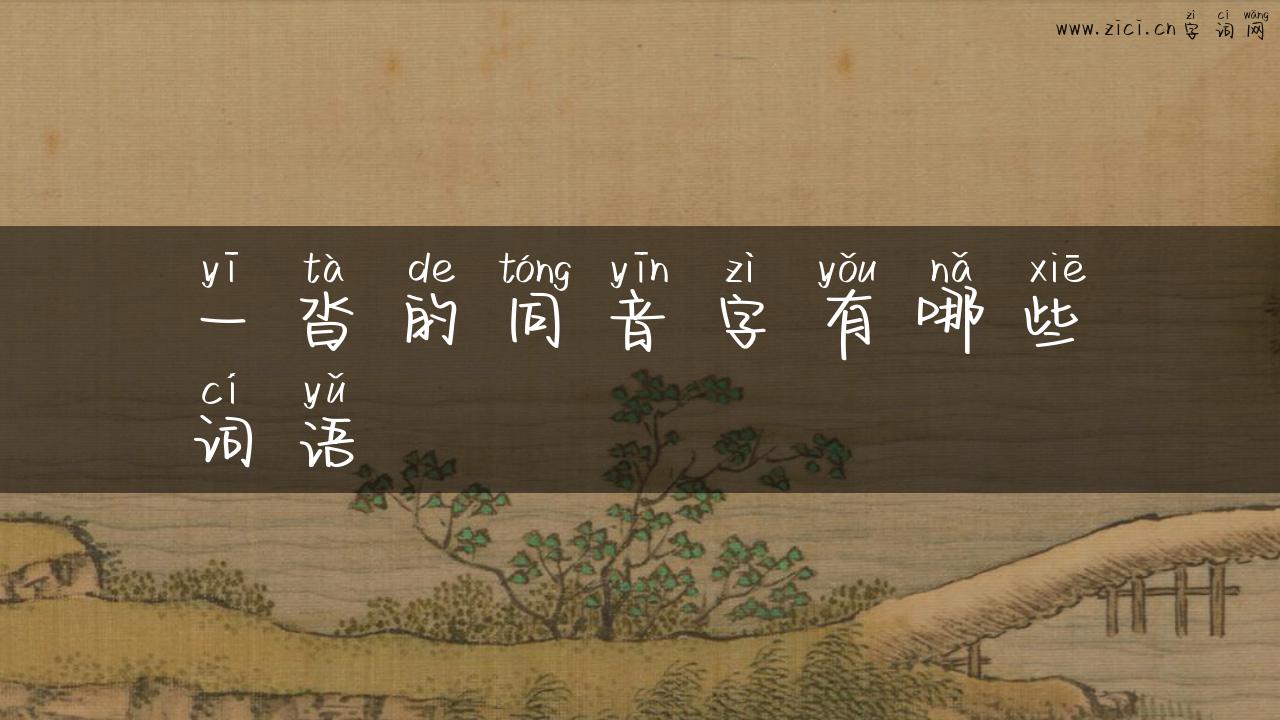 zì cí wǎng
www.zici.cn 字词网
yī tà de tóng yīn zì yǒu nǎ xiē
一沓的同音字有哪些
cí yǔ
词语